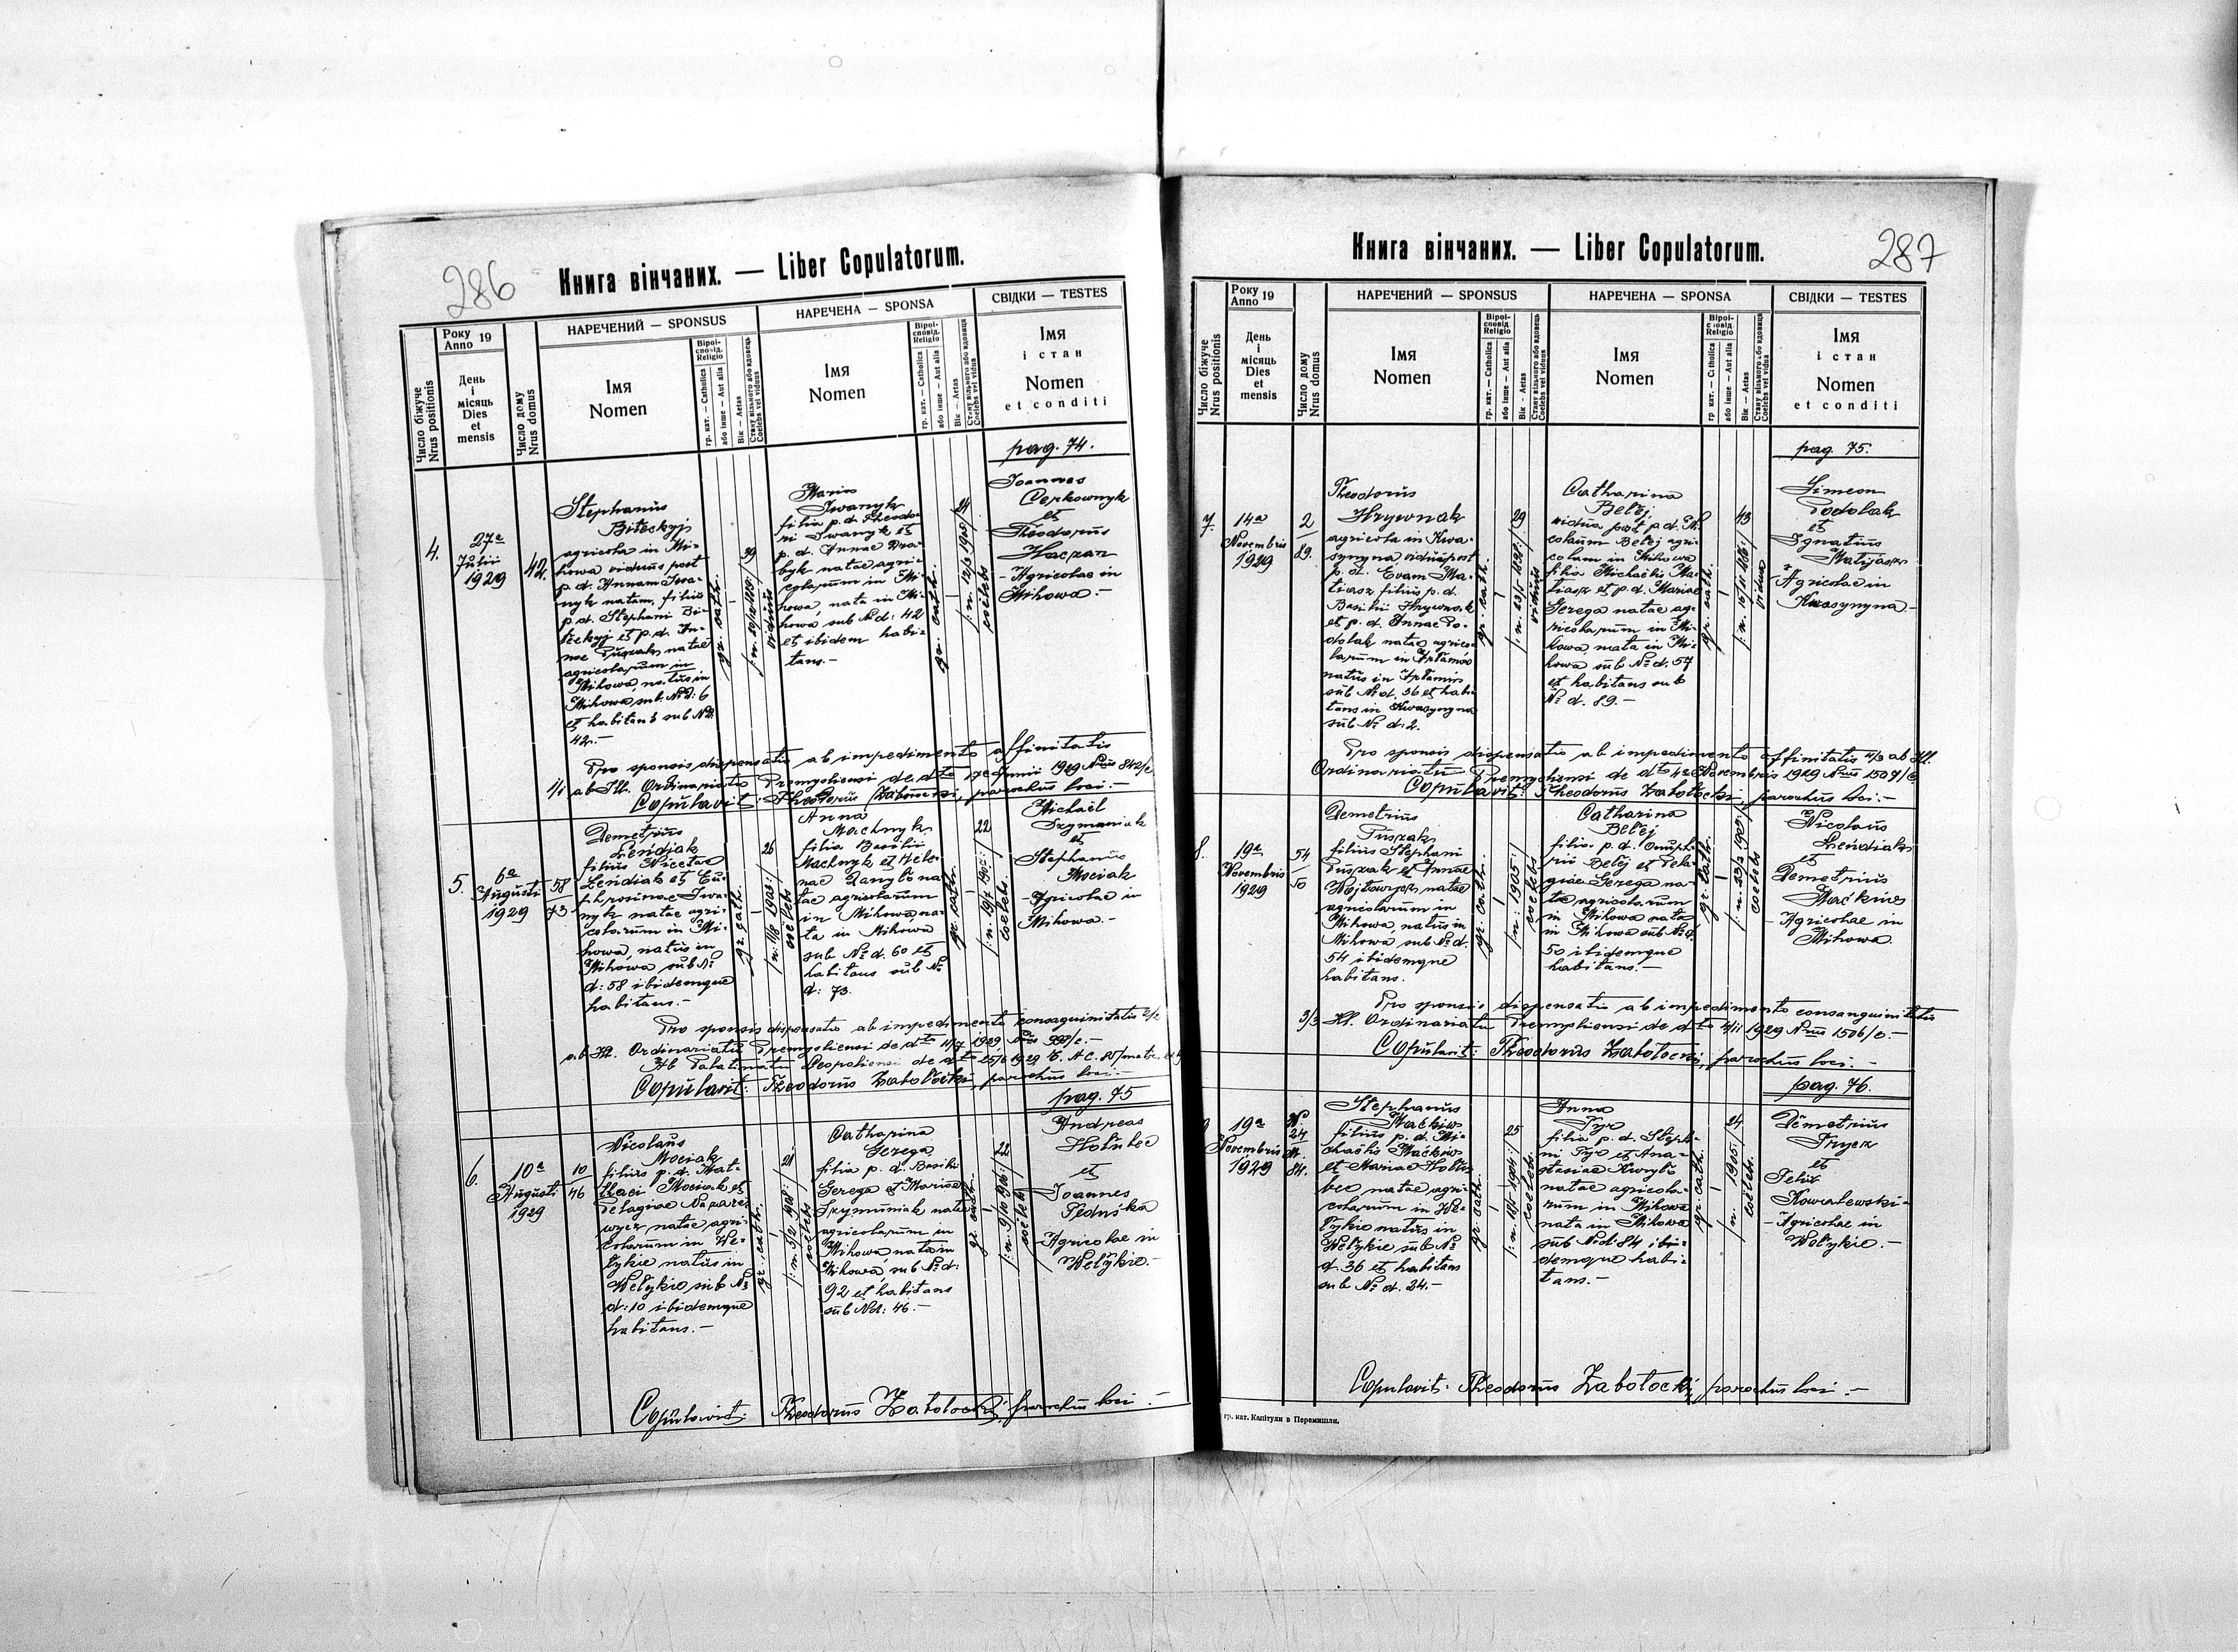 286
Книга вінчаних. — Liber Copulatorum.
Число біжуче
Nrus positionis
Року
Anno 19
День
і
місяць
Dies
et
mensis
Число дому
Nrus domus
НАРЕЧЕНИЙ — SPONSUS
Імя
Nomen
Віроі-
сповід.
Religio
гр. кат. — Catholica
або інше — Aut alia
Вік — Aetas
Стану вільного або вдовець
Coelebs vel viduus
НАРЕЧЕНА — SPONSA
Імя
Nomen
Віроі-
сповід.
Religio
гр. кат. — Catholica
або інше — Aut alia
Вік — Aetas
Стану вільного або вдовиця
Coelebs vel vidua
СВІДКИ — TESTES
Імя
і стан
Nomen
et conditi
pag. 74.
4.
27a
Julii
1929
42.
Stephanus
Biłeckyj
agricola in Mi-
howa viduus post
p. d. Annam Iwa-
nyk natam, filius
p. d. Stephani Bi-
łeckyj et p. d. An-
nae Puszak natae
agricolarum in
Mihowa, natus in
Mihowa sub. N.d: 6
et habitans sub Nd.
42.—
gr. cath.
39
viduus
Maria
Iwanyk
filia p. d. Theodo-
ri Iwanyk et
p. d. Annae Dra-
byk natae agri-
colarum in Mi-
howa, nata in Mi-
howa sub Nd: 42
et ibidem habi-
tans.—
gr. cath.
24
/: n. 12/3 1905/
coelebs
Joannes
Cerkownyk
et
Theodorus
Kaczar
- Agricolae in
Mihowa.—
Pro sponsis dispensatio ab impedimento affinitatis
1/1 ab Ill. Ordinariatu Premysliensi de dto 17 Junii 1929 Nrus 842/e
Copulavit: Theodorus Zabołocki, parochus loci.—
5.
6a
Augusti
1929
58
73
Demetrius
Łendjak
filius Nicetae
Łendiak et Eu-
phrosinae Iwa-
nyk natae agri-
colarum in Mi-
howa, natus in
Mihowa sub No
d: 58 ibidemque
habitans.—
gr. cath.
26
/n: 1/8 1903:/
coelebs
Anna
Machnyk
filia Basilii
Machnyk et Hele-
nae Danyło na-
tae agricolarum
in Mihowa, na-
ta in Mihowa
sub No d. 60 et
habitans sub No
d: 73.
gr. cath.
22
coelebs
Michaël
Szymaniak
et
Stephanus
Mociak
- Agricolae in
Mihowa.—
Pro sponsis dispensatio ab impedimento consanguinitatis 2/2
ab Ill. Ordinariatu Premysliensi de dto 4/7 1929
Copulavit: Theodorus Zabołocki, parochus loci.—
pag. 75
6.
10a
Augusti
1929
10
46
Nicolaus
Mociak
filius p. d. Mat-
thaei Mociak et
Pelagiae Nazare-
wycz natae agri-
colarum in We-
łykie natus in
Wełykie sub No
d: 10 ibidemque
habitans.—
gr. cath.
21
/: n. 5/2 1908:/
coelebs
Catharina
Gerega
filia p. d. Basilii
Gerega et Mariae
Szymuniak natae
agricolarum in
Mihowa, nata in
Mihowa, sub No d:
92 et habitans
sub Nd: 46.—
gr. cath.
22
coelebs
Andreas
Hołubec
et
Joannes
Peduśka
Agricolae in
Wełykie.—
Copulavit: Theodorus Zabołocki, parochus loci.—
287
Книга вінчаних. — Liber Copulatorum.
Число біжуче
Nrus positionis
Року
Anno 19
День
і
місяць
Dies
et
mensis
Число дому
Nrus domus
НАРЕЧЕНИЙ — SPONSUS
Імя
Nomen
Віроі-
сповід.
Religio
гр. кат. — Catholica
або інше — Aut alia
Вік - Aetas
Стану вільного або вдовець
Coelebs vel viduus
НАРЕЧЕНА — SPONSA
Імя
Nomen
Віроі-
сповід.
Religio
гр кат. — Catholica
або інше — Aut alia
Вік — Aetas
Стану вільного або вдовиця
Coelebs vel vidua
СВІДКИ — TESTES
Імя
і стан
Nomen
et conditi
pag. 75.
7.
14a
Novembris
1929
2
89.
Theodorus
Hrywnak
agricola in Kwa-
synyna viduus post
p. d. Evam Ma-
tiasz filius p. d.
Basilii Hrywnak
et p. d. Annae Po-
dolak natae agrico-
larum in Arłamów
natus in Arłamów
sub No d. 36 et habi-
tans in Kwasynyna
sub No d: 2.
gr. cath.
29
viduus
Catharina
Bełej
vidua post p. d. Ni-
colaum Bełej agri-
colam in Mihowa
filia Michaëlis Ma-
tiasz et p. d. Mariae
Gerega natae ag-
ricolarum in Mi-
howa, nata in Mi-
howa sub No d. 57
et habitans sub
No d. 89.—
gr. cath.
43
vidua
Simeon
Podolak
et
Ignatius
Matijasz
- Agricolae in
Kwasynyna—
Pro sponsis dispensatio ab impedimento affinitatis 4/3 ab Ill.
Ordinariatu Premysliensi de dto 4 Novembris 1929 Nrus 1507/e
Copulavit: Theodorus Zabołocki, parochus loci.—
8.
19a
Novembris
1929
54
50
Demetrius
Puszak
filius Stephani
Puszak et Annae
Wojtowycz natae
agricolarum in
Mihowa, natus in
Mihowa sub No d.
54 ibidemque
habitans.
gr. cath.
/: n: 1905:/
coelebs
Catharina
Bełej
filia p. d. Onuph-
rii Bełej et Pela-
giae Gerega na-
tae agricolarum
in Mihowa nata
in Mihowa sub No d.
50 ibidemque
habitans.—
gr. cath.
coelebs
Nicolaus
Łendiak
et
Demetrius
Maćkiw
- Agricolae in
Mihowa.
Pro sponsis dispensatio ab impedimento consanguinitatis
3/3 Ill. Ordinariatu Premysliensi de dto 4/11 1929 Nrus 1506/e.—
Copulavit: Theodorus Zabołocki, parochus loci.—
pag. 76.
19a
Novembris
1929
W.
24
M.
84.
Stephanus
Maćkiw
filius p. d. Mi-
chaëlis Maćkiw
et Mariae Hołu-
bec natae agri-
colarum in We-
łykie natus in
Wełykie sub No
d. 36 et habitans
sub No d. 24.—
gr. cath.
25
coelebs
Anna
Tyr
filia p. d. Steph-
ni Tyr et Ana-
stasiae Kuryło
natae agricola-
rum in Mihowa
nata in Mihowa
sub No d: 84 ibi-
demque habi-
tans.—
gr. cath.
24
/: n. 1905:/
coelebs
Demetrius
Frycz
et
Felix
Kowalewski-
- Agricolae in
Wełykie.—
Copulavit: Theodorus Zabołocki, parochus loci.—
гр. кат. Капітули в Перемишли.